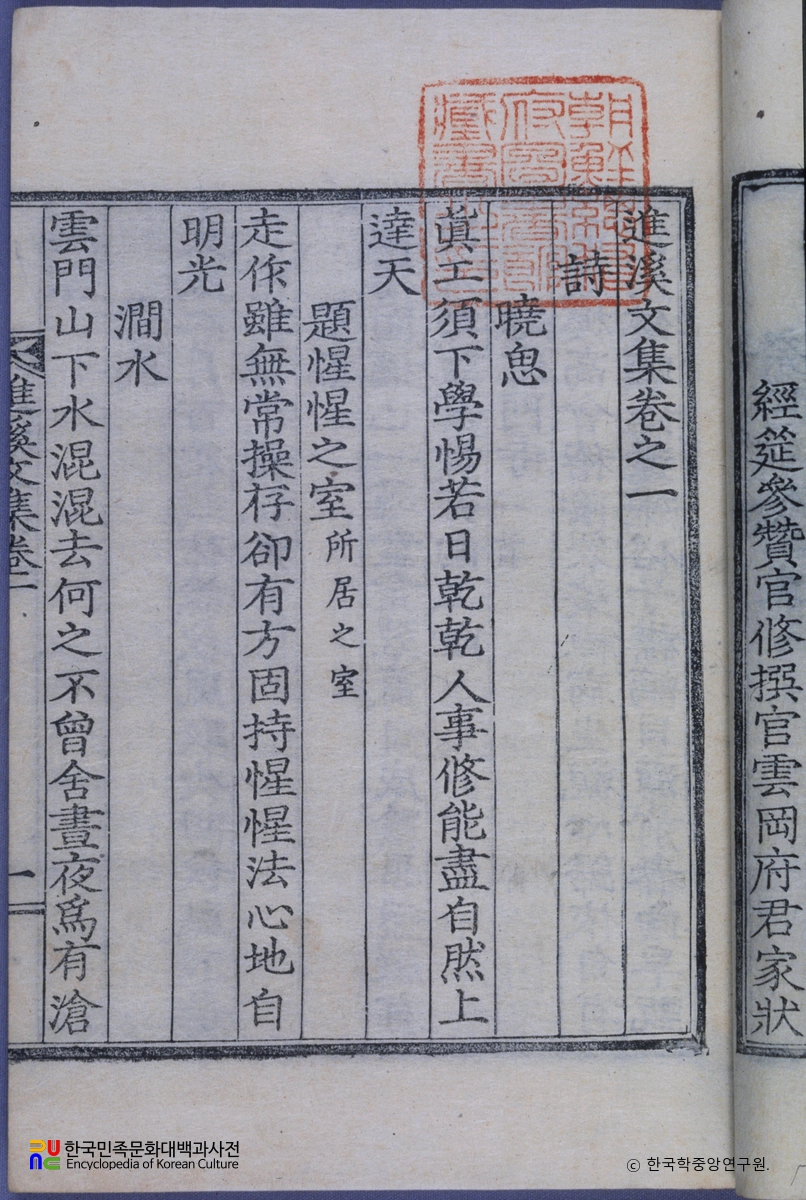 經筵參贊官修撰官雲岡府君家狀
朝鮮總督
府圖書館
藏書之印
進溪文集卷之一
詩
曉恖
眞工須下學惕若日乾乾人事修能盡自然上
達天
題惺惺之室 所居之室
走作雖無常操存卻有方固持惺惺法心地自
明光
澗水
雲門山下水混混去何之不曾舍晝夜爲有滄
進溪文集卷 一
한국민족문화대백과사전
Encyclopedia of Korean Culture
ⓒ 한국학중앙연구원.